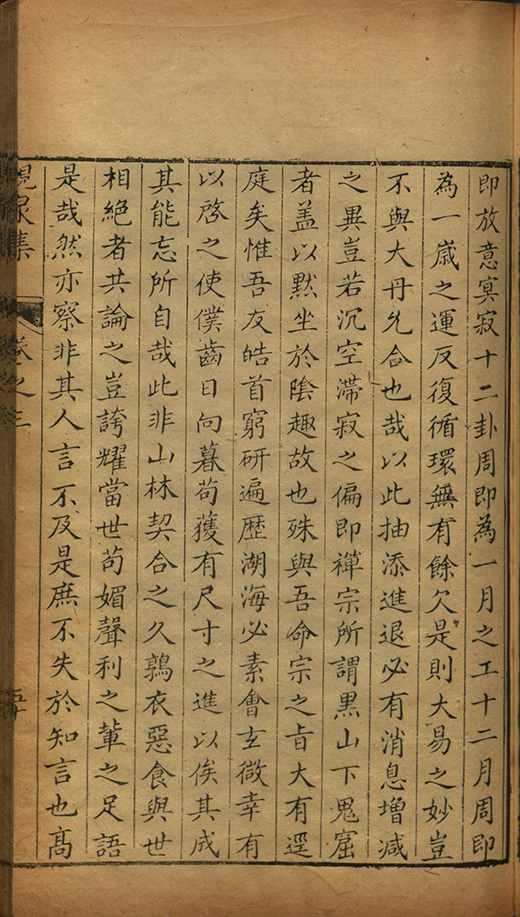 即放意冥寂十二卦周即為一月之工十二月周即
為一嵗之運反復循環無有餘欠是則大易之妙豈
不與大丹允合也哉以此抽添進退必有消息增減
之異豈若沉空滯寂之偏即禪宗所謂黒山下鬼窟
者盖以黙坐於陰趣故也殊與吾命宗之旨大有逕
庭矣惟吾友皓首窮研遍歴湖海必素會玄微幸有
以啓之使僕齒日向暮苟獲有尺寸之進以俟其成
其能忘所自哉此非山林契合之久鶉衣惡食與世
相絶者共論之豈誇耀當世苟媚聲利之輩之足語
是哉然亦察非其人言不及是庶不失於知言也髙
峴泉集
卷之三